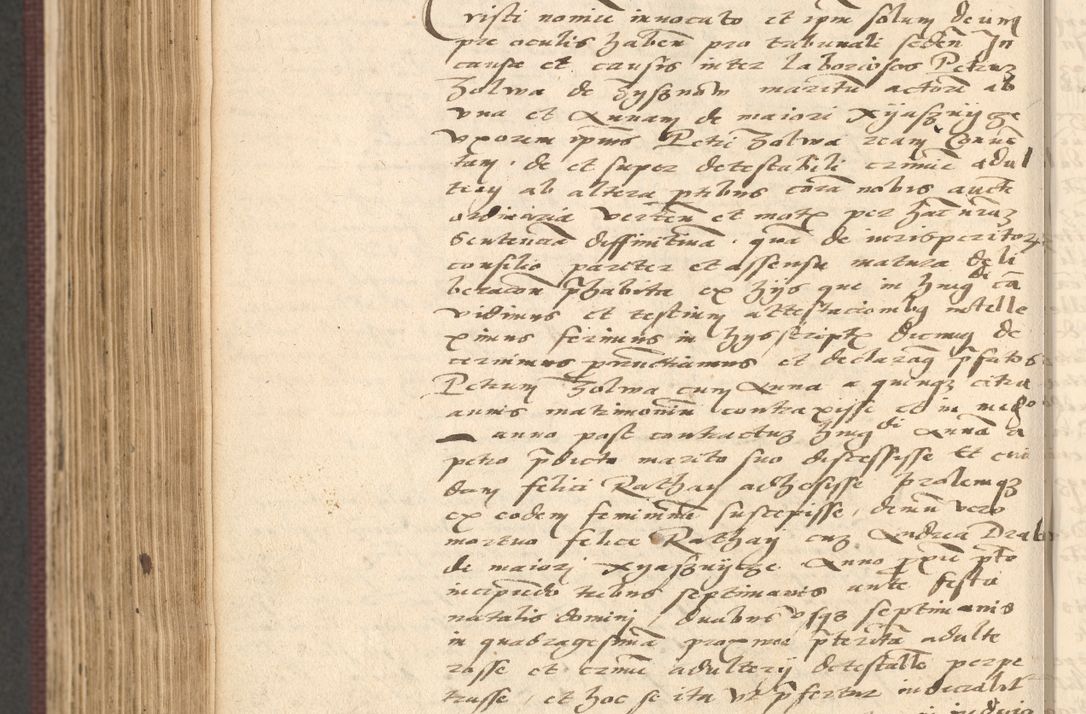 risti nomine invocato et ipm solum deum
pre oculis haben pro tribunali seden In
causa et causis inter laboriosos Petrum
Zolwa de Zysznow maritu actore ab
vna et Annam de maiori Xyaszny ge
vxorem ipius Petri Zolwa ream Conuen
tam de et super detestabili crimine adul
terij ab altera ptibus cora nobis aucte
ordinaria verten et mot per hac nram
Sententia diffinitiua qua de iurisperitor
consilio pariter et assensu matura deli
beracion phabita ex hijs que in huiusdi ca
vidimus et testium attestacionibus intelle
ximus ferimus in hijs script dicimus de
cernimus pronunctiamus et declaramus pfatos
Petrum Zolwa cum Anna a quinque citra
annis matrimoniu contraxisse et in medio
anno post contractum huiusdi Anna a
petro pdicto marito suo discessisse Et cui
dam felici Rathay adhesisse prolemque
ex eodem feminina suscepisse, demu vero
mortuo felice Rathaij cum Andrea Drab
de maiorj Xyasznycze Anno proxie pto
incipiendo tribus septimanis ante festa
natalis dominj, duabus vsque septimanis
in quadragesima proxime pterita adulte
rasse et crimen adulterij detestabile perpe
trasse, et hoc se ita vt pfertur indicialit